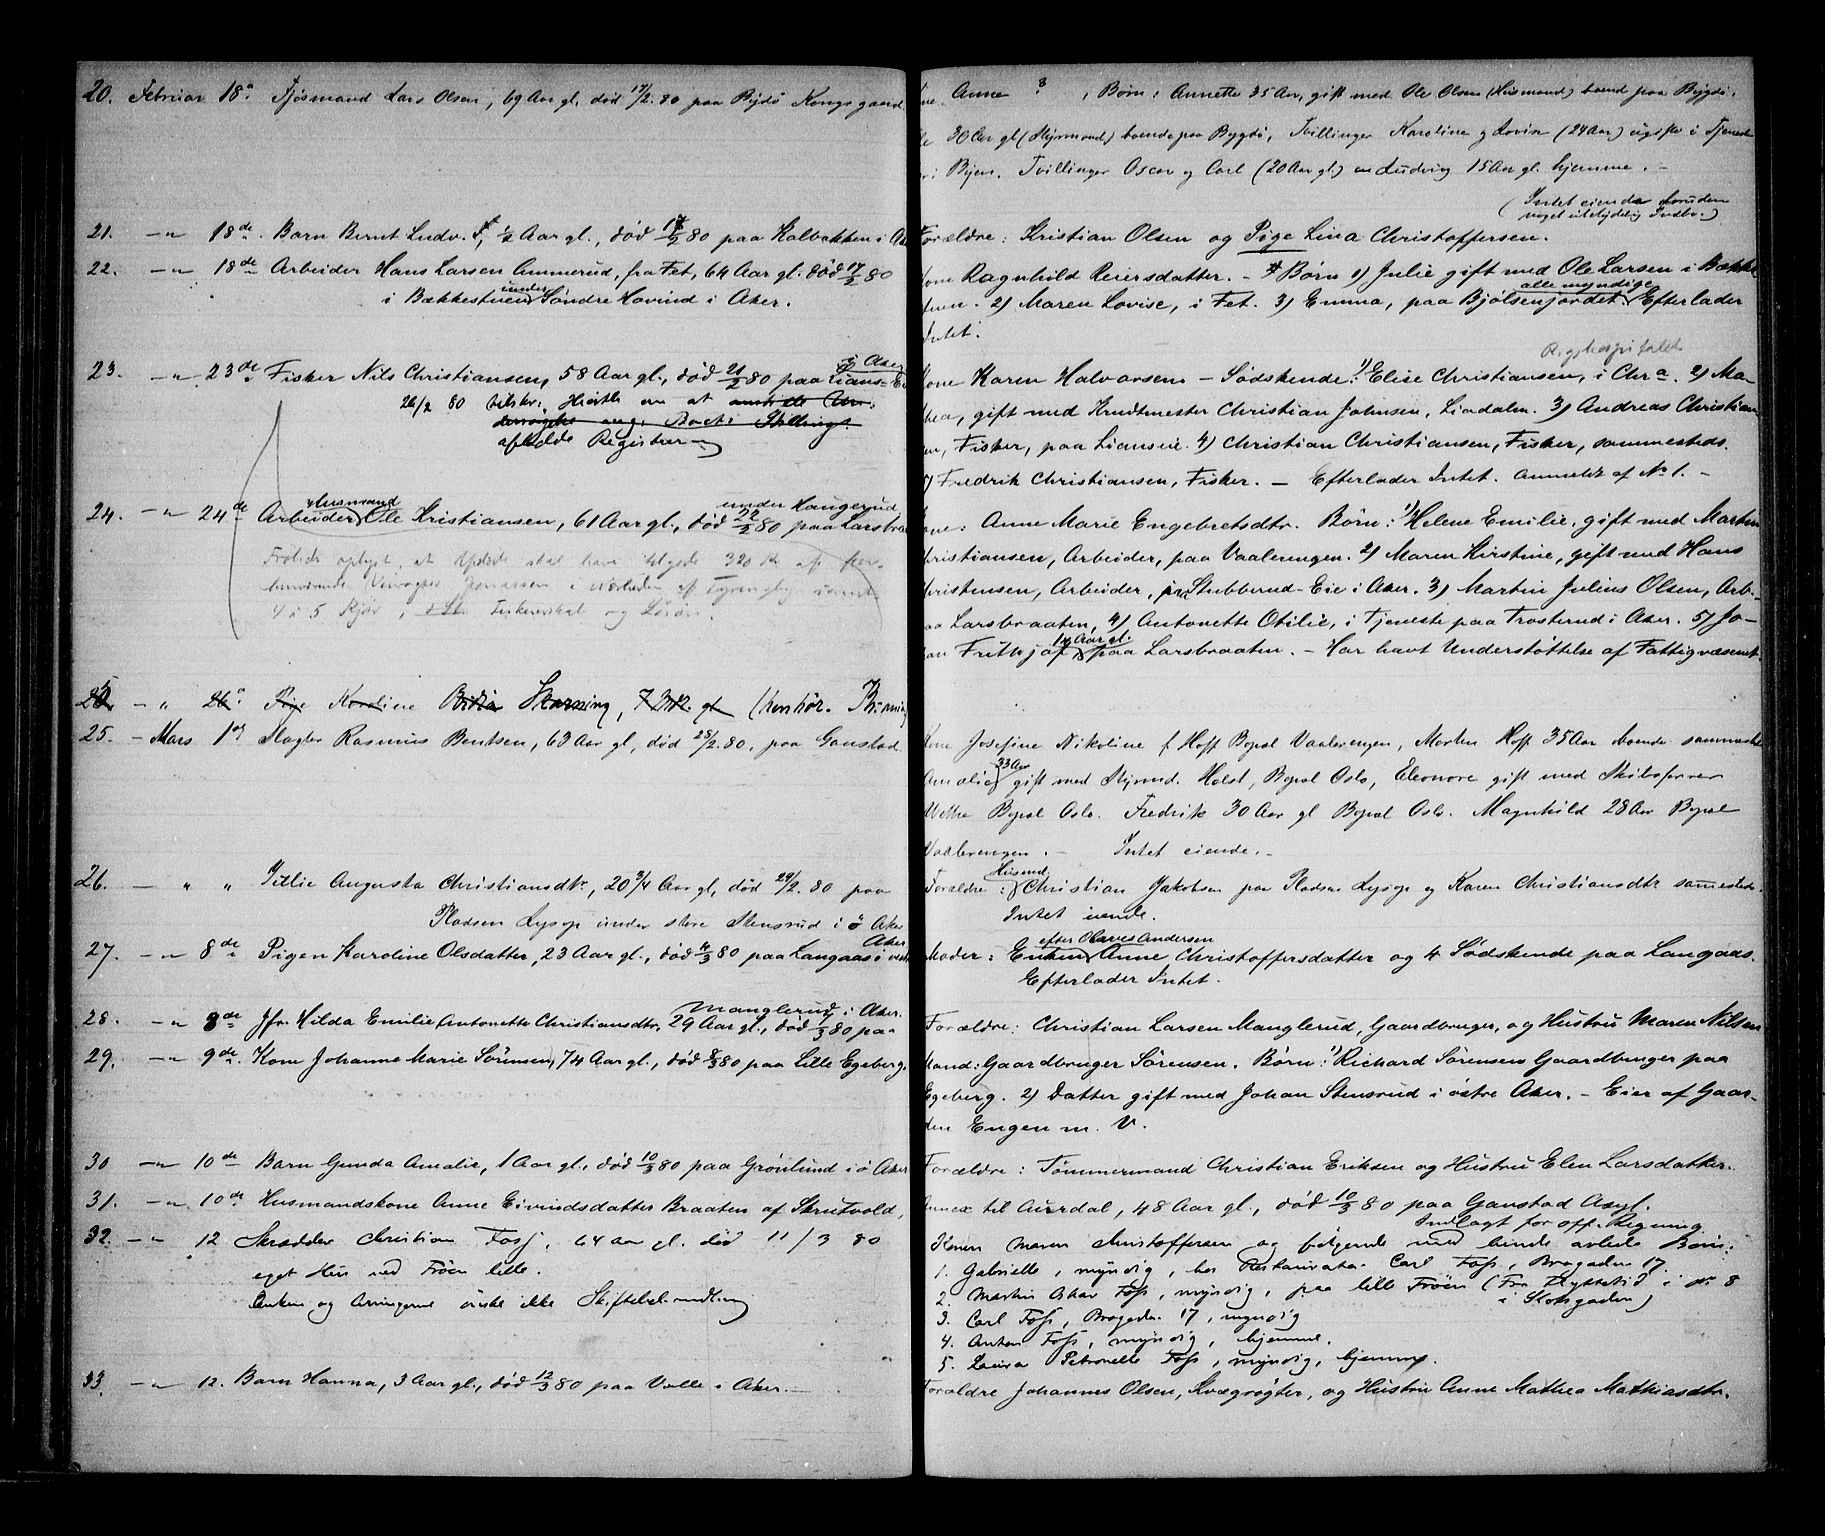 20. Februar 18. Fjøsmand Lars Olsen, 69 Aar gl. død 17/2. 80 paa Bygdø Kongsgaard
Anne ? , Børn: Annette 35 Aar, gift med Ole Olsen (Husmand) boende paa Bygdø,
30 Aar gl (Styrmand) boende paa Bygdø, Tvillinger Karoline og Lovise (24 Aar) ugifte i Tjeneste
i Byen. Tvillinger Oscar og Carl (20 Aar gl.) en Ludvig 15 Aar gl. hjemme. -
(Intet eiende foruden
noget ubetydelig Indbo.)
21. -"- 18de. Barn Bernt Ludv. F, ½ Aar gl., død 17/2 80 paa Kalbakken i Aker
Forældre: Kristian Olsen og Pige Lina Christoffersen.
22. -"- 18de Arbeider Hans Larsen Ammerud, fra Fet, 64 Aar gl. død 17/2 80
i Bækkestuen under Søndre Hovind i Aker.
Kone Ragnhild Reiersdatter. - Børn 1) Julie gift med Ole Larsen i Bække-
stuen. 2) Maren Lovise, i Fet. 3) Emma, paa Bjølsenjordet. alle myndige Efterlader
Intet.
23. -"- 23de Fisker Nils Christiansen, 58 Aar gl., død 21/2 80 paa Lians-Eie i Aker
26/2 80 tilskr. Hiorth om at
afholde Registrering
Kone Karen Halvorsen - Sødskende: 1) Elise Christiansen, i Chra. Rigshospitalet 2) Ma-
thea, gift med Krudtmester Christian Johnsen, Lindalen. 3) Andreas Christian-
sen, Fisker, paa Lianseie. 4) Christian Christiansen, Fisker, sammesteds.
5) Fredrik Christiansen, Fisker. - Efterlader Intet. Anmeldt af No 1. -
24. -"- 24de Arbeider Husmand Ole Kristiansen, 61 Aar gl., død 22/2 80 paa Larsbraaten under Haugerud
Frølich oplyst, at Afdøde skal have 320 Kr af for-
henværende i
4 a 5 Kjør, og
Kone: Anne Marie Engebretsdtr. Børn: 1) Helene Emilie, gift med Martin
Christiansen, Arbeider, paa Vaalerengen. 2) Maren Kirstine, gift med Hans
Christensen, Arbeider, paa Stubberud-Eie i Aker. 3) Martin Julius Olsen, Arb.
paa Larsbraaten, 4) Antonette Otilie, i Tjeneste paa Trosterud i Aker. 5) Jo-
han Frithjof 14 Aar gl. paa Larsbraaten. - Har havt Understøttelse af Fattigvæsenet.
25 -"- 26. Pige Karoline Skarning, 7 Mdr. gl (henhør.
25. - Mars 1ste Slagter Rasmus Bentsen, 63 Aar gl, død 28/2. 80, paa Gaustad.
Kone Josefine Nikoline f Hoff Bopæl Vaalerengen, Morten Hoff 35 Aar boende sammested
Amalie 33 Aar gift med Styrmd. Holst, Bopæl Oslo, Eleonore gift med Skibsfører
Wethe Bopæl Oslo. Fredrik 30 Aar gl Bopæl Oslo. Magnhild 28 Aar Bopæl
Vaalerengen. - Intet eiende. -
26. - " " Jullie Augusta Christiansdtr., 20 3/4 Aar gl, død 29/2. 80 paa
Pladsen Lysop under store Stensrud i ø Aker
Forældre: Husmd. Christian Jakobsen paa Pladsen Lysop og Karen Christiansdtr sammesteds.
Intet eiende.
27. -"- 8de Pigen Karoline Olsdatter, 23 Aar gl., død 4/3 80 paa Langaas i vestre Aker
Moder: Enken efter Olaves Andersen Anne Christoffersdatter og 4 Sødskende paa Langaas.
Efterlader Intet.
28. -"- 8de Jfr. Hilda Emilie Antonette Christiansdtr, 29 Aar gl., død 7/3 80 paa Manglerud i Aker.
Forældre: Christian Larsen Manglerud, Gaardbruger, og Hustru Maren Nilsen
29. -"- 9de. Kone Johanne Marie Sørensen, 74 Aar gl., død 8/3 80 paa Lille Egeberg.
Mand: Gaardbruger Sørensen. Børn: 1) Richard Sørensen Gaardbruger paa
Egeberg. 2) Datter gift med Johan Stensrud i østre Aker. - Eier af Gaar-
den Engen m. V.
30 -"- 10de Barn Gunda Amalie, 1 Aar gl., død 10/3 80 paa Grønlund i ø Aker
Forældre: Tømmermand Christian Eriksen og Hustru Elen Larsdatter.
31. -"- 10de Husmandskone Anne Eivindsdatter Braaten af Skrutvold,
Annex til Aurdal, 48 Aar gl., død 10/3 80 paa Gaustad Asyl.
Indlagt for off. Regning
32. -"- 12 Skrædder Christian Foss, 64 Aar gl. død 11/3 80
eget Hus ved Frøen lille.
Enken og Arvingerne ønske ikke Skiftebehandling
Konen Maren Christoffersen og følgende med hende avlede Børn:
1. Gabrielle, myndig, hos Restauratør Carl Foss, Brogaden 17.
2. Martin Oskar Foss, myndig, paa lille Frøen (Fra Flyttetid i No 8
i Storgaden)
3. Carl Foss, Brogaden 17, myndig
4. Anton Foss, myndig, hjemme.
5. Laura Petronelle Foss, myndig, hjemme.
33. -"- 12. Barn Hanna, 3 Aar gl., død 12/3 80 paa Valle i Aker.
Forældre Johannes Olsen, Kvægrøgter, og Hustru Anne Mathea Mathiasdtr.